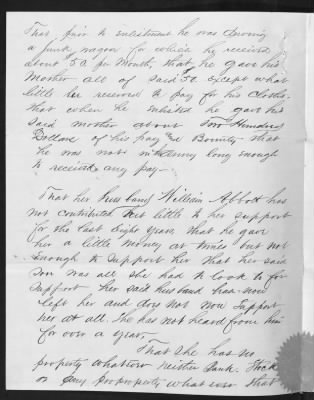 That prior to enlistment he was driving
a junk wagon for which he received
about $50 per Month, that he gave his
Mother all of said 50 except what
little he reserved to pay for his Clothes.
that when he enlisted he gave his
said mother about Two Hundred
Dollars of his pay and Bounty that
he was not in Army long enough
to receive any pay-
That her husband William Abbott has
not contributed but little to her support
for the last Eight years that he gave
her a little money at times but not
enough to Support her that her said
Son was all she had to look to for
Support. her said husband has now
left her and does not now Support
her at all. She has not heard from him
for over a year,
That She has no
property whatsoever neither Bank Stock
or any property what ever that